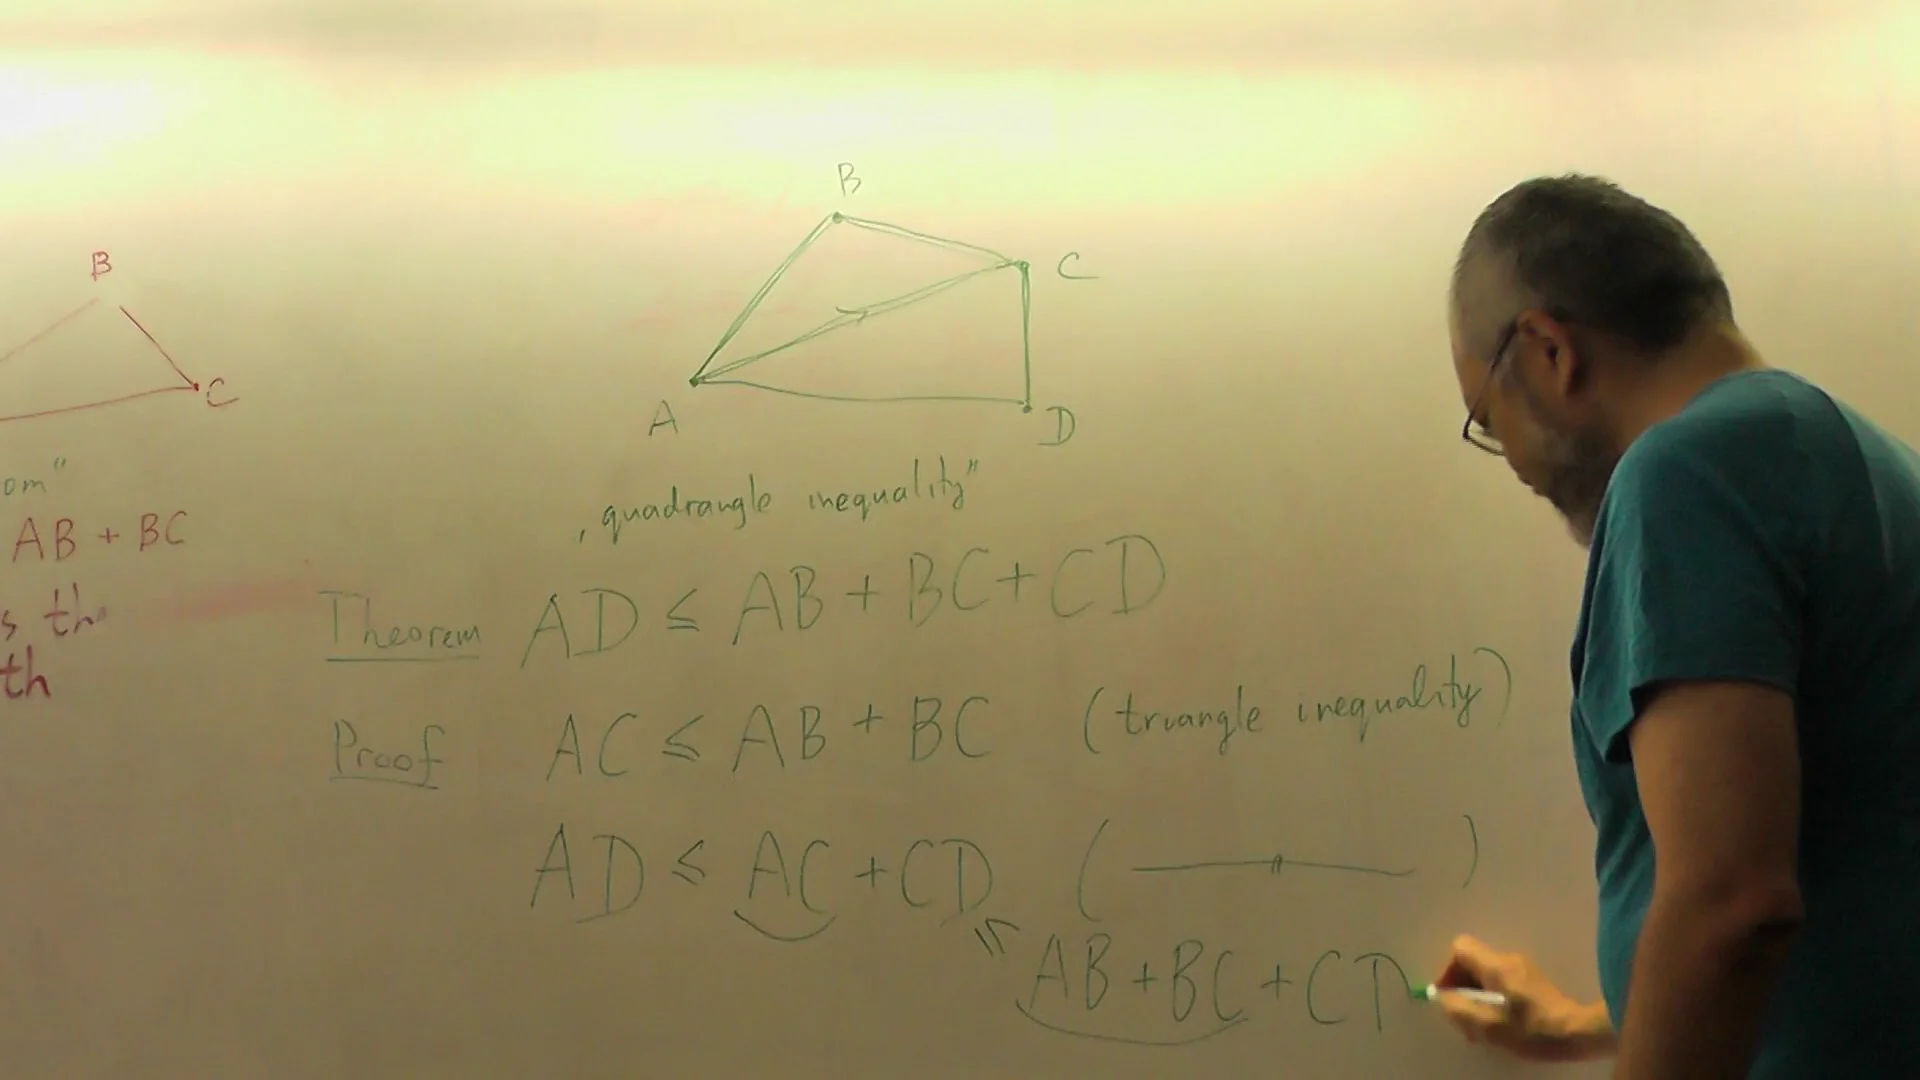 B
C
om"
AB + BC
s th
th
B
C
A
D
„quadrangle inequality"
Theorem AD ≤ AB + BC + CD
Proof AC ≤ AB + BC (triangle inequality)
AD ≤ AC + CD ( —〃— )
≤ AB + BC + CD